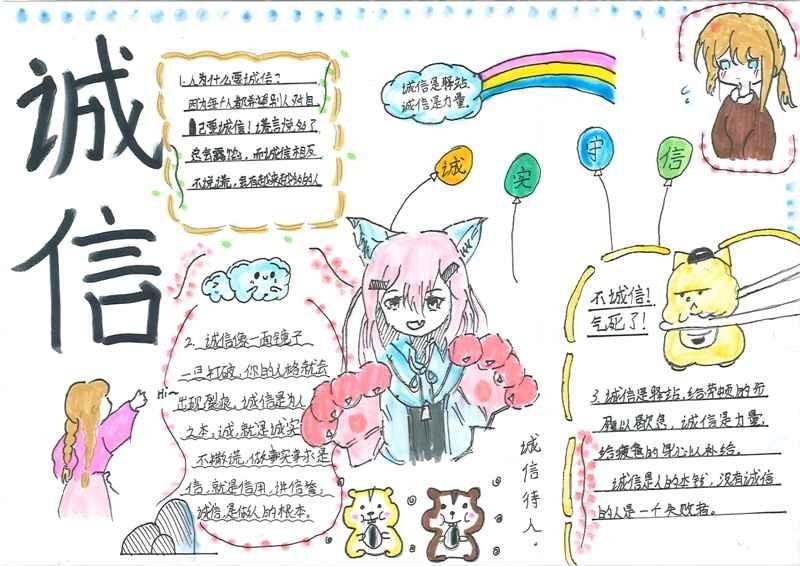 诚信
1.人为什么要诚信?
因为每个人都希望别人对自
己要诚信!谎言说多了
总会露馅,而诚信相反
不说谎,会有越来越多的人
诚信是驿站,
诚信是力量.
诚实守信
2.诚信像一面镜子
一旦打破,你的人格就会
出现裂痕。诚信是为人
之本,诚,就是诚实
不撒谎,做事实事求是
信,就是信用,讲信誉,
诚信是做人的根本。
Hi~
诚信待人.
不诚信!
气死了!
3.诚信是驿站,给劳顿的
以歇息,诚信是力量,
给疲惫的身心以补给。
诚信是人的本钱,没有诚信
的人是一个失败者。